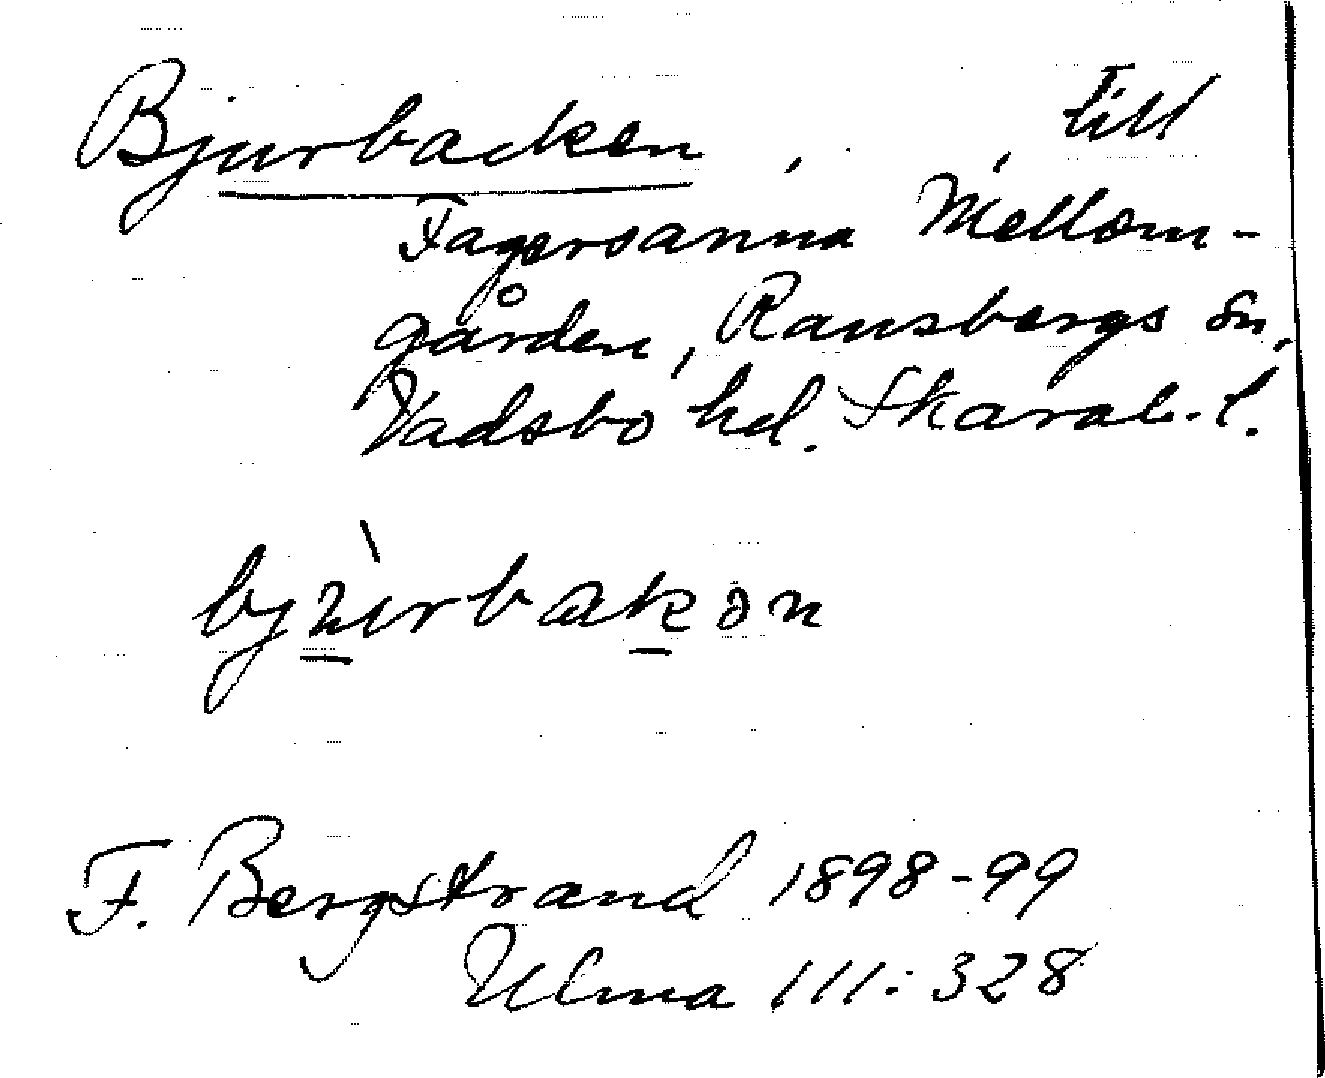 Bjurbacken, , till
Fagersanna Mellom-
gården, Ransbergs sn,
Vadsbo hd. Skarab. l.
bjùrbakən
F. Bergstrand 1898-99
Ulma 111:328